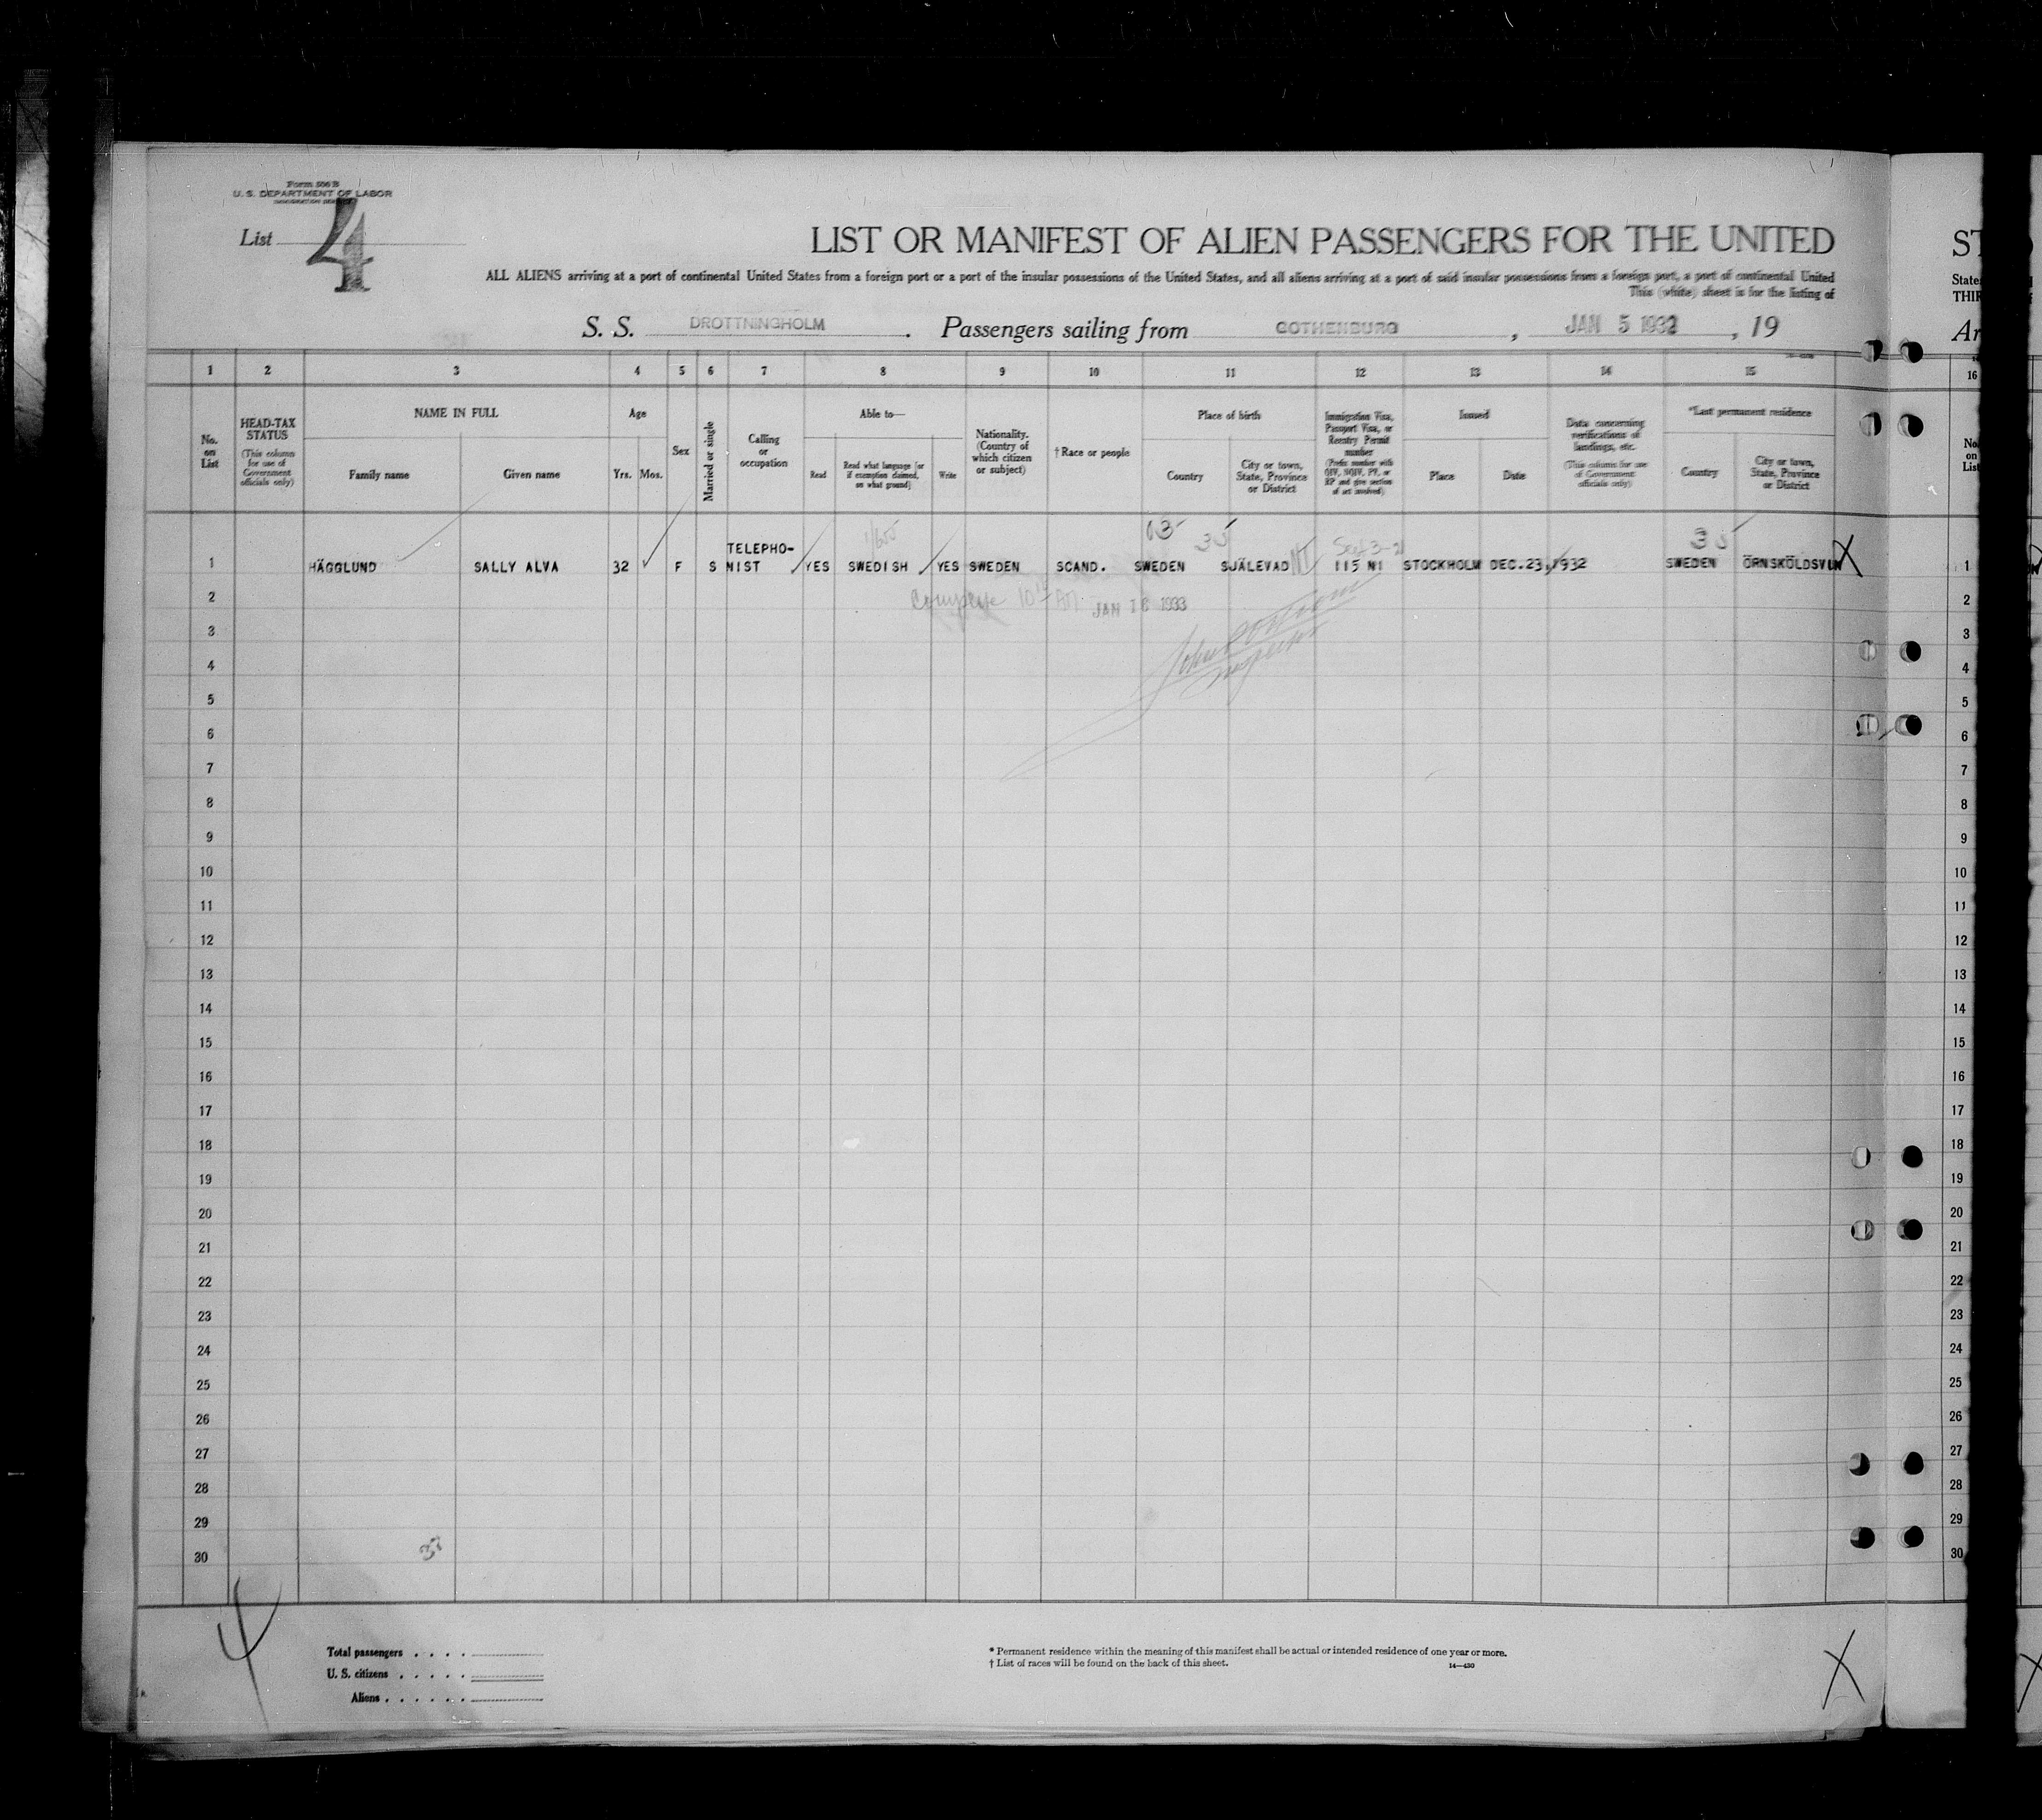 Form 506 B
U. S. DEPARTMENT OF LABOR
IMMIGRATION SERVICE
List 4
LIST OR MANIFEST OF ALIEN PASSENGERS FOR THE UNITED
ALL ALIENS arriving at a port of continental United States from a foreign port or a port of the insular possessions of the United States, and all aliens arriving at a port of said insular possessions from a foreign port, a port of continental United
This (white) sheet is for the listing of
S. S. DROTTNINGHOLM. Passengers sailing from GOTHENBURG, JAN 5 1932, 19
1 2 3 4 5 6 7 8 9 10 11 12 13 14 15
No. on List
HEAD-TAX STATUS (This column for use of Government officials only)
NAME IN FULL
Family name Given name
Age
Yrs. Mos.
Sex
Married or single
Calling or occupation
Able to—
Read
Read what language [or if exemption claimed, on what ground]
Write
Nationality. (Country of which citizen or subject)
† Race or people
Place of birth
Country
City or town, State, Province or District
Immigration Visa, Passport Visa, or Reentry Permit number
(Prefix number with QIV, NQIV, PV, or RP and give section of act involved)
Issued
Place Date
Data concerning verifications of landings, etc.
(This column for use of Government officials only)
*Last permanent residence
Country
City or town, State, Province or District
35 35
1 HÄGGLUND SALLY ALVA 32 F S TELEPHO-NIST YES SWEDISH YES SWEDEN SCAND. SWEDEN SJÄLEVAD 115 NI STOCKHOLM DEC.23,1932 SWEDEN ÖRNSKÖLDSVIK
2 JAN 16 1933
3
4
5
6
7
8
9
10
11
12
13
14
15
16
17
18
19
20
21
22
23
24
25
26
27
28
29
30
4
Total passengers . . . .
U. S. citizens . . . . .
Aliens . . . . . .
* Permanent residence within the meaning of this manifest shall be actual or intended residence of one year or more.
† List of races will be found on the back of this sheet.
14—430
X
ST
State
THIR
Ar
16
No. on List
1
2
3
4
5
6
7
8
9
10
11
12
13
14
15
16
17
18
19
20
21
22
23
24
25
26
27
28
29
30